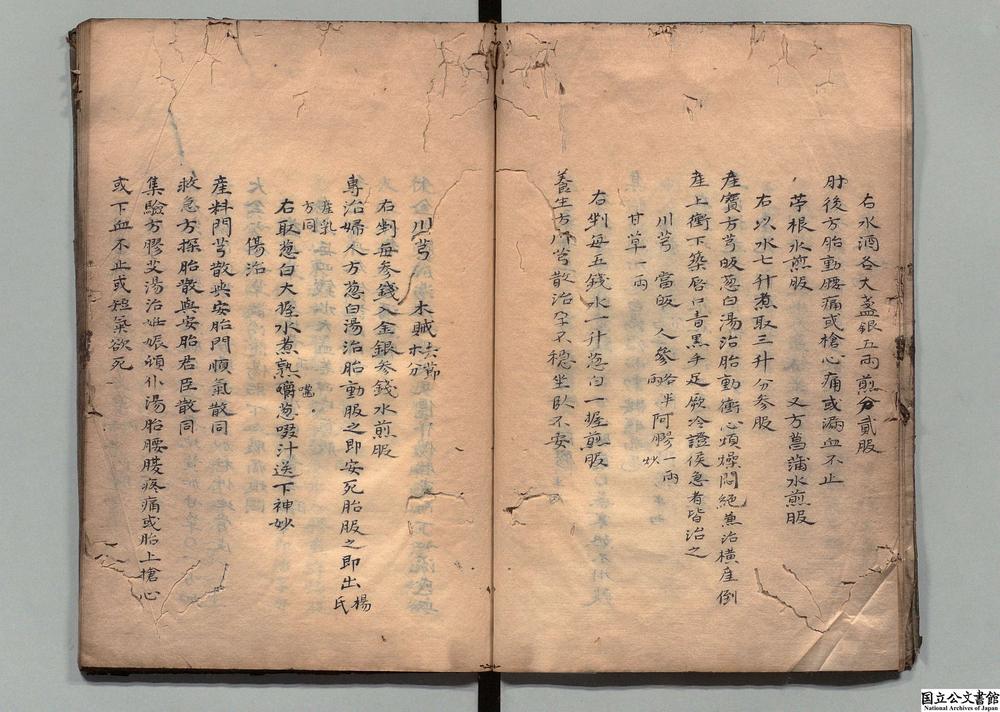 右水酒各大盞銀五兩煎分貳服
肘後方胎動腰痛或槍心痛或漏血不止
苧根水煎服　又方菖蒲水煎服
右以水七升煮取三升分參服
產寶方芎皈葱白湯治胎動衝心煩燥悶絕兼治橫產倒
產上衝下築唇口青黑手足厥冷證候急者皆治之
川芎　當皈　人參各半兩　阿膠一兩炒
甘草一兩
右剉每五錢水一升葱白一握煎服
養生方川芎散治孕不穩坐臥不安
川芎　木賊去節等分
右剉每參錢入金銀參錢水煎服
專治婦人方葱白湯治胎動服之即安死胎服之即出楊氏
產乳方同
右取葱白大握水煮熟嚼葱啜汁送下神妙
傷治
產科門芎散與安胎門順氣散同
救急方探胎散與安胎君臣散同
集驗方膠艾湯治妊娠頓仆湯胎腰腹疼痛或胎上搶心
或下血不止或短氣欲死
国立公文書館
National Archives of Japan